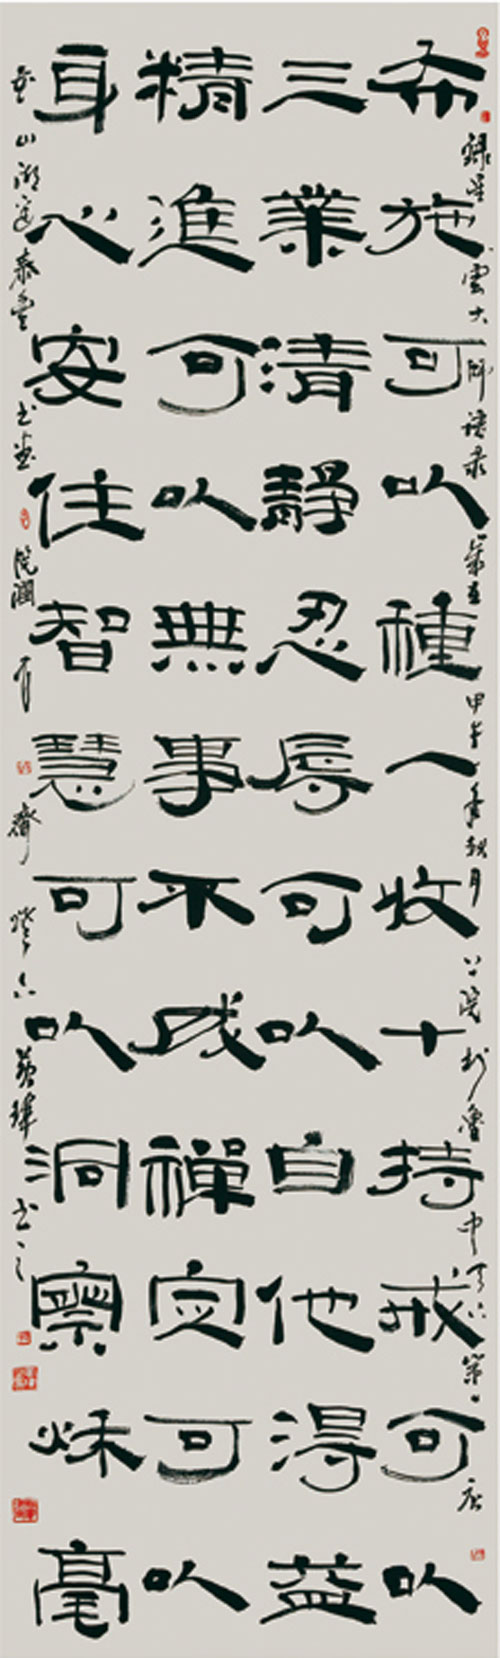 錄星雲大師語录 甲午年 月
布施可以種一收十持戒可以
三業清靜忍辱可以自他得益
精進可以無事不成禪定可以
身心安住智慧可以洞察秋毫
山湖 泰豐书画院